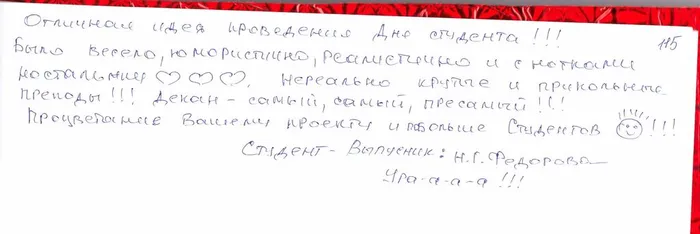 Отличная идея проведения Дня студента!!!
115
Было весело, юмористично, реалистично и с нотками
ностальгии ♡♡♡. Нереально крутые и прикольные
преподы!!! Декан - самый, самый, пресамый!!!
Процветание Вашему проекту и побольше Студентов ☺!!!
Студент - Выпускник: Н.Г. Федорова
Ура-а-а-а!!!